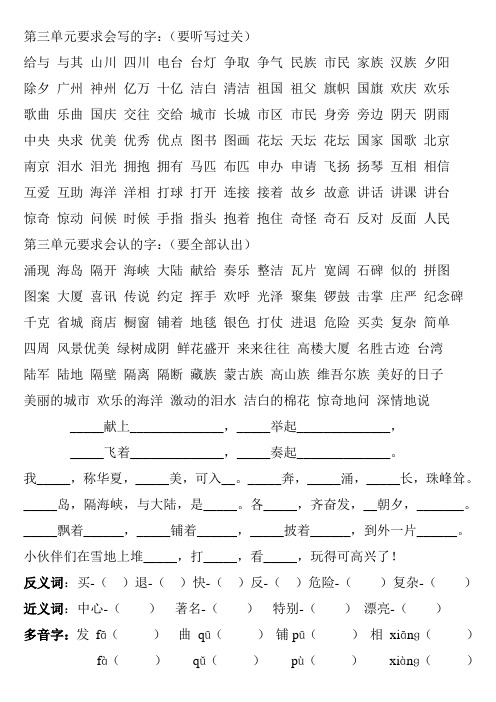 第三单元要求会写的字：（要听写过关）
给与 与其 山川 四川 电台 台灯 争取 争气 民族 市民 家族 汉族 夕阳
除夕 广州 神州 亿万 十亿 洁白 清洁 祖国 祖父 旗帜 国旗 欢庆 欢乐
歌曲 乐曲 国庆 交往 交给 城市 长城 市区 市民 身旁 旁边 阴天 阴雨
中央 央求 优美 优秀 优点 图书 图画 花坛 天坛 花坛 国家 国歌 北京
南京 泪水 泪光 拥抱 拥有 马匹 布匹 申办 申请 飞扬 扬琴 互相 相信
互爱 互助 海洋 洋相 打球 打开 连接 接着 故乡 故意 讲话 讲课 讲台
惊奇 惊动 问候 时候 手指 指头 抱着 抱住 奇怪 奇石 反对 反面 人民
第三单元要求会认的字：（要全部认出）
涌现 海岛 隔开 海峡 大陆 献给 奏乐 整洁 瓦片 宽阔 石碑 似的 拼图
图案 大厦 喜讯 传说 约定 挥手 欢呼 光泽 聚集 锣鼓 击掌 庄严 纪念碑
千克 省城 商店 橱窗 铺着 地毯 银色 打仗 进退 危险 买卖 复杂 简单
四周 风景优美 绿树成阴 鲜花盛开 来来往往 高楼大厦 名胜古迹 台湾
陆军 陆地 隔壁 隔离 隔断 藏族 蒙古族 高山族 维吾尔族 美好的日子
美丽的城市 欢乐的海洋 激动的泪水 洁白的棉花 惊奇地问 深情地说
_____献上______________，_____举起______________，
_____飞着______________，_____奏起______________。
我_____，称华夏，_____美，可入__。_____奔，_____涌，_____长，珠峰耸。
_____岛，隔海峡，与大陆，是_____。各_____，齐奋发，__朝夕，_______。
_____飘着______，_____铺着______，_____披着______，到外一片______。
小伙伴们在雪地上堆_____，打_____，看_____，玩得可高兴了！
反义词：买-（ ）退-（ ）快-（ ）反-（ ）危险-（ ）复杂-（ ）
近义词：中心-（ ） 著名-（ ） 特别-（ ） 漂亮-（ ）
多音字：发 fā（ ） 曲 qū（ ） 铺 pū（ ） 相 xiāng（ ）
fà（ ） qǔ（ ） pù（ ） xiàng（ ）